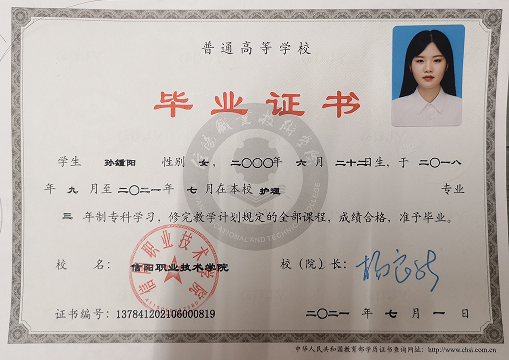 普通高等学校
毕业证书
学生 孙鍾阳 性别 女，二〇〇〇年 六 月 二十二日生，于 二〇一八
年 九 月至 二〇二一年 七 月在本校 护理 专业
三 年制专科学习，修完教学计划规定的全部课程，成绩合格，准予毕业。
校 名： 信阳职业技术学院 校（院）长：
信阳职业技术学院
证书编号：137841202106000819 二〇二一 年 七 月 一 日
中华人民共和国教育部学历证书查询网址：http://www.chsi.com.cn